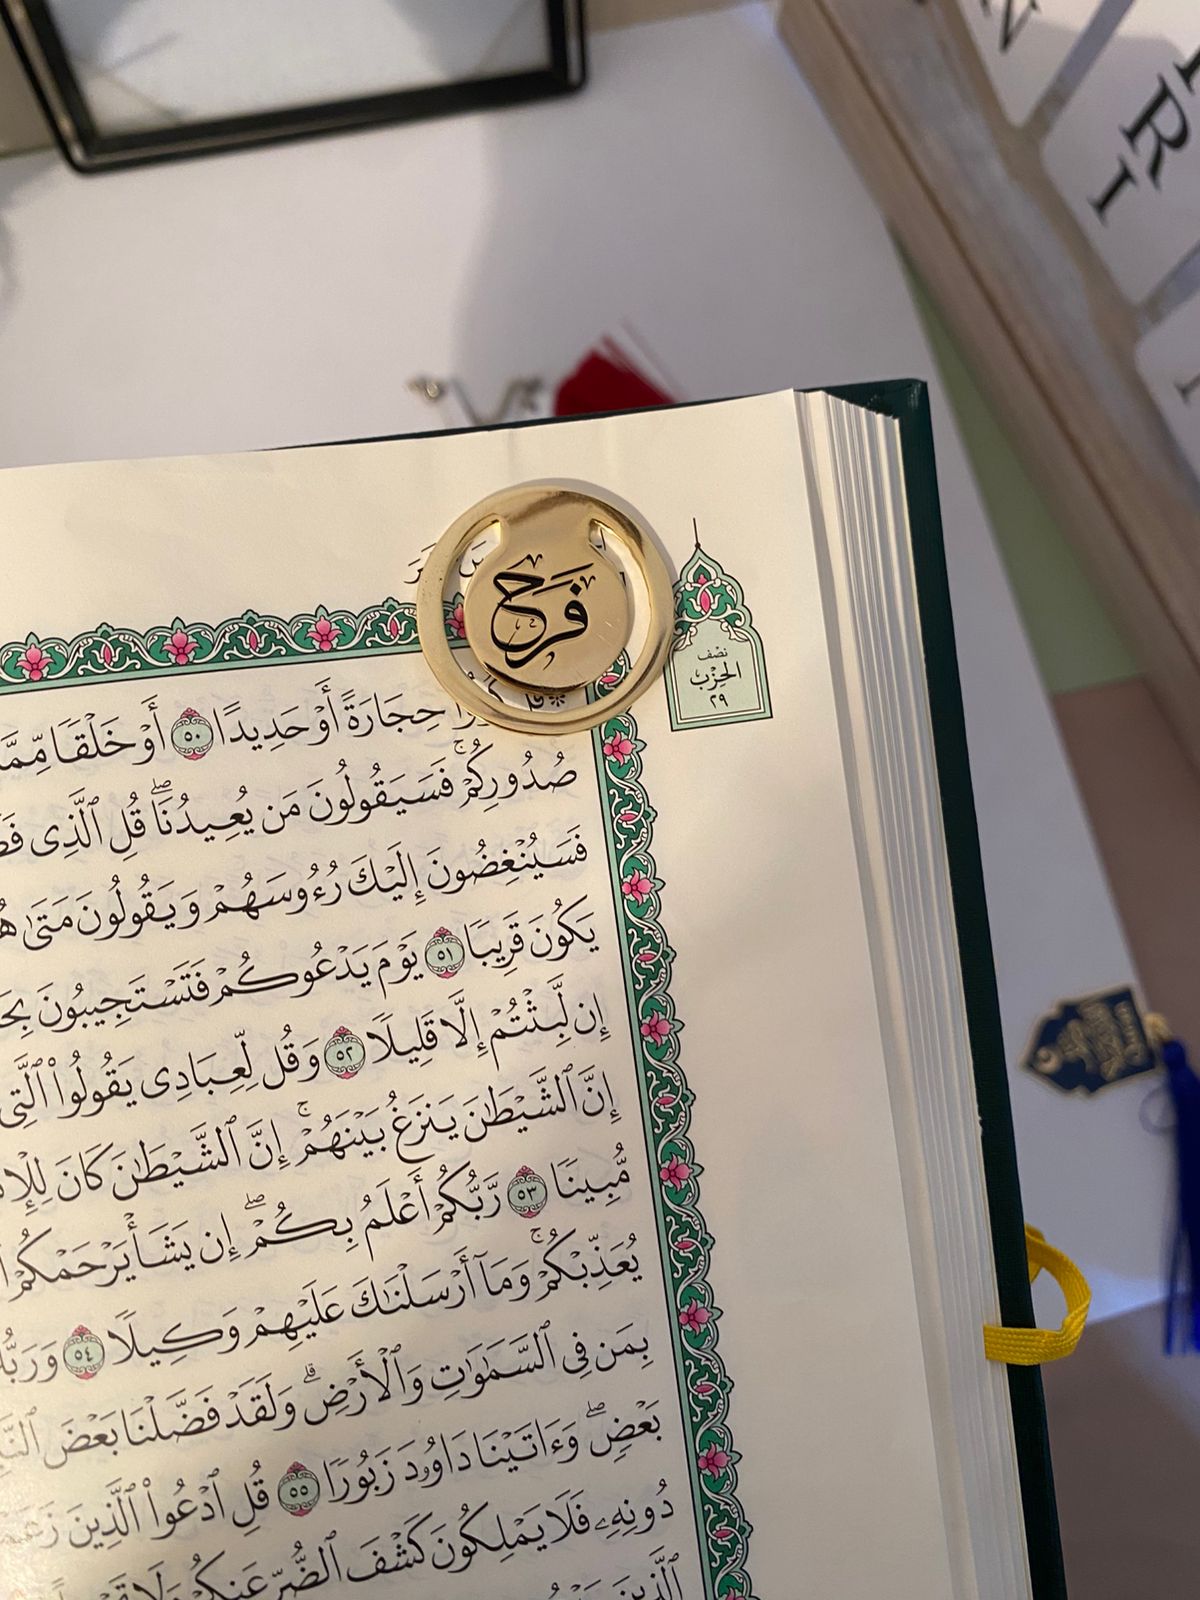 فرح
نصف
الحزب
٢٩
حِجَارَةً أَوْ حَدِيدًا ٥٠ أَوْ خَلْقًا مِّمَّا
صُدُورِكُمْ ۚ فَسَيَقُولُونَ مَن يُعِيدُنَا ۖ قُلِ ٱلَّذِى
فَسَيُنْغِضُونَ إِلَيْكَ رُءُوسَهُمْ وَيَقُولُونَ مَتَىٰ
يَكُونَ قَرِيبًا ٥١ يَوْمَ يَدْعُوكُمْ فَتَسْتَجِيبُونَ
إِن لَّبِثْتُمْ إِلَّا قَلِيلًا ٥٢ وَقُل لِّعِبَادِى يَقُولُوا۟ ٱلَّتِى
إِنَّ ٱلشَّيْطَٰنَ يَنزَغُ بَيْنَهُمْ ۚ إِنَّ ٱلشَّيْطَٰنَ كَانَ
مُّبِينًا ٥٣ رَّبُّكُمْ أَعْلَمُ بِكُمْ ۖ إِن يَشَأْ يَرْحَمْكُمْ
يُعَذِّبْكُمْ ۚ وَمَآ أَرْسَلْنَٰكَ عَلَيْهِمْ وَكِيلًا ٥٤
بِمَن فِى ٱلسَّمَٰوَٰتِ وَٱلْأَرْضِ ۗ وَلَقَدْ فَضَّلْنَا بَعْضَ
بَعْضٍ ۖ وَءَاتَيْنَا دَاوُۥدَ زَبُورًا ٥٥ قُلِ ٱدْعُوا۟ ٱلَّذِينَ
دُونِهِۦ فَلَا يَمْلِكُونَ كَشْفَ ٱلضُّرِّ عَنكُمْ وَلَا
ٱلَّذِينَ